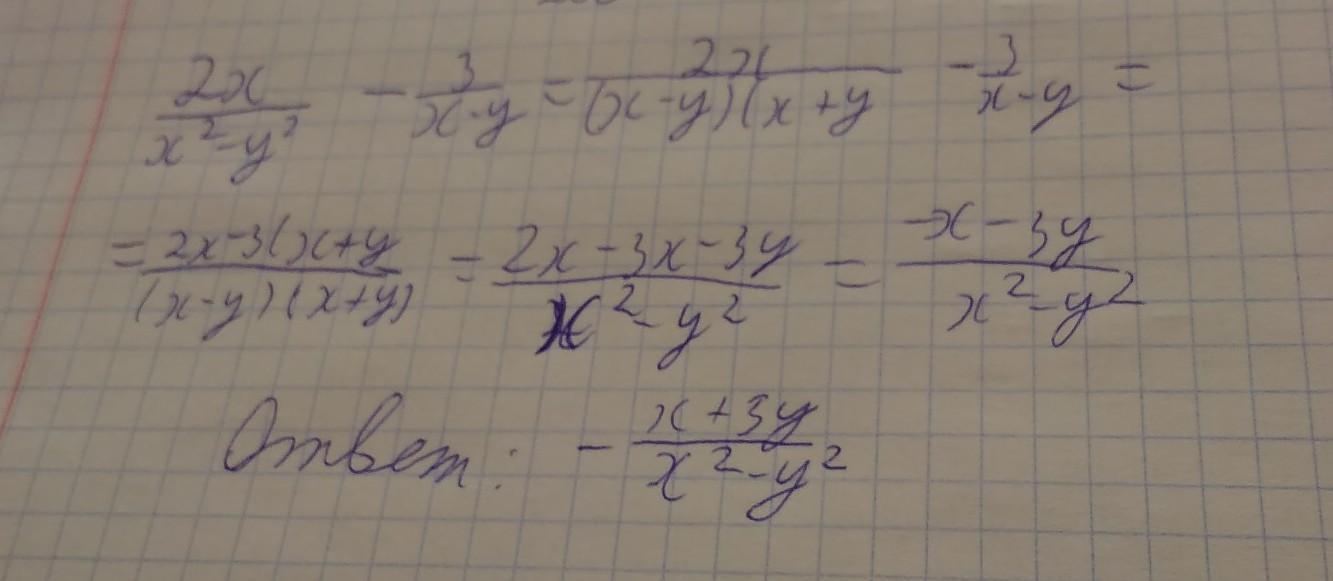 2x/(x²-y²) - 3/(x-y) = 2x/((x-y)(x+y) - 3/(x-y) =
= (2x-3(x+y)/((x-y)(x+y)) = (2x-3x-3y)/(x²-y²) = (-x-3y)/(x²-y²)
Ответ: - (x+3y)/(x²-y²)